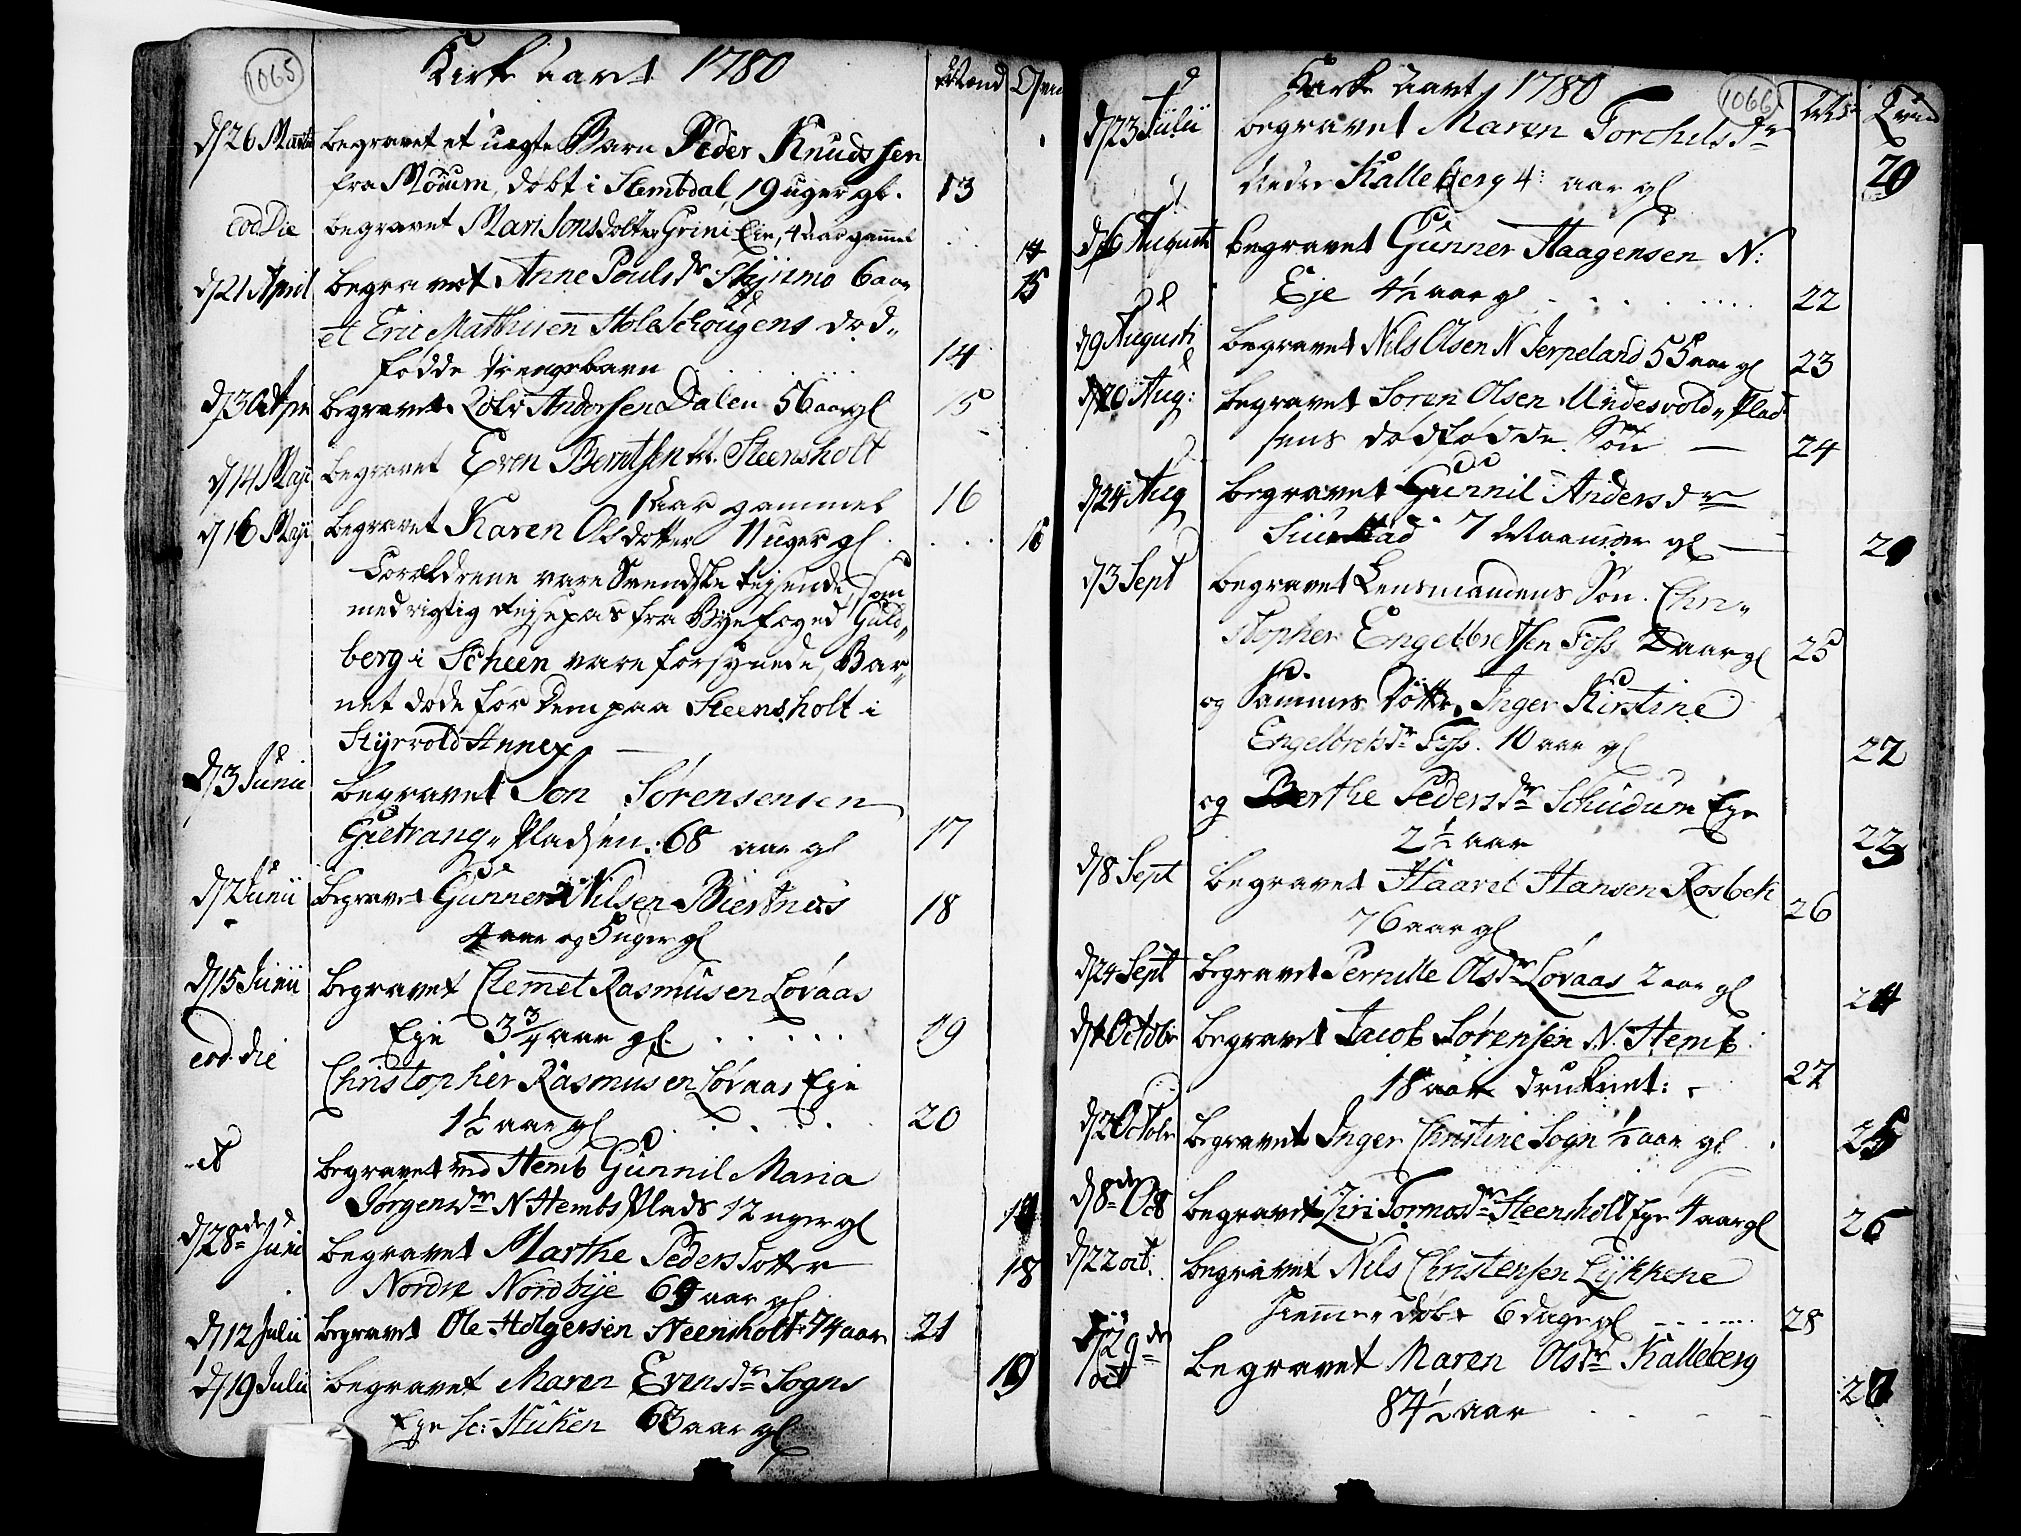 1065
Kirke Aaret 1780
Mænd Qvin
d/26 Martii begravet et uægte Barn Peder Knudssen
fra Moeum, døbt i Slembdal, 19 uger gl. 13
eod Die begravet Mari Jonsdotter Grini Eie, 4 aar gammel
14
d/21 April begravet Anne Pouls dr 6 aar 15
et Eric Mathisen Holeschougens død-
fødde drengebarn 14
d/30 Apr begravet Rolv Andorsen Dalen 56 aar gl 15
d/14 Maji begravet Even Berntsen Steensholt
1 aar gammel 16
d/16 Maji begravet Karen Olsdotter 11 uger gl. 16
Forældrene vare Svendske rejsende, som
med rigtig rejsepas fra Byefoged Guld-
berg i Scheen vare forsynede, Bar-
net døde for dem paa Steensholt i
Styrvold Annex
d/3 Junii begravet Jon Sørensensen
Gietrang-Pladsen. 68 aar gl 17
d/2 Junii begravet Gunner Nilsen Biertnæs 18
4 aar og 5 uger gl
d/15 Junii begravet Clemet Rasmusen Løvaas
Eje 3 3/4 aar gl. 19
eod. die Christopher Rasmusen Løvaas Eje
1 1/2 aar gl 20
et begravet ved Hemb Gunnil Maria
Jørgens dr N Hembs Plads 12 uger gl
d/28de Juni begravet Marthe Pedersdotter
Nordre Nordbye 69 aar gl 18
d/12 Julii begravet Ole Holgersen Steensholt 74 aar 21
d/19 Julii begravet Maren Evens dr Sogns 19
Eje sc: Huken 63 aar gl
1066
Kirke Aaret 1780
Qvind
d/23 Julii begravet Maren Torchels dr
nedre Kalleberg 4 aar gl 20
d/6 Augusti begravet Gunner Haagensen N:
Eje 4 1/2 aar gl 22
d/9 Augusti begravet Nils Olsen N Jerpeland 55 aar gl 23
d/20 Aug: begravet Soren Olsen Undesvold-Plad-
sens dødfødde Søn 24
d/24 Aug begravet Gunnil Anders dr
7 Maaneder gl 21
d/3 Sept begravet Lensmandens Søn. Chri-
stopher Engelbretsen Foss 2 aar gl 25
og Sammes Dotter, Inger Kirstine
Engelbrets dr Foss. 10 aar gl 22
og Berthe Peders dr Schudum Eje
2 1/2 aar 23
d/8 Sept begravet Haavel Hansen Rosbek 26
76 aar gl
d/24 Sept begravet Pernille Ols dr Løvaas 2 aar gl 24
d/1 Octobr begravet Jacob Sørensen N. Hemb
18 aar druknet: 27
d/2 Octobr begravet Inger Christine Sogn 1/2 aar gl. 25
d/8de Oct begravet Ziri Tormos dr Steensholt Eje 4 aar gl 26
d/22 oct. begravet Nils Christensen Lykkene
hiemme døbt 6 dage gl 28
d/29de oct begravet Maren Ols dr Kalleberg
84 1/2 aar 27